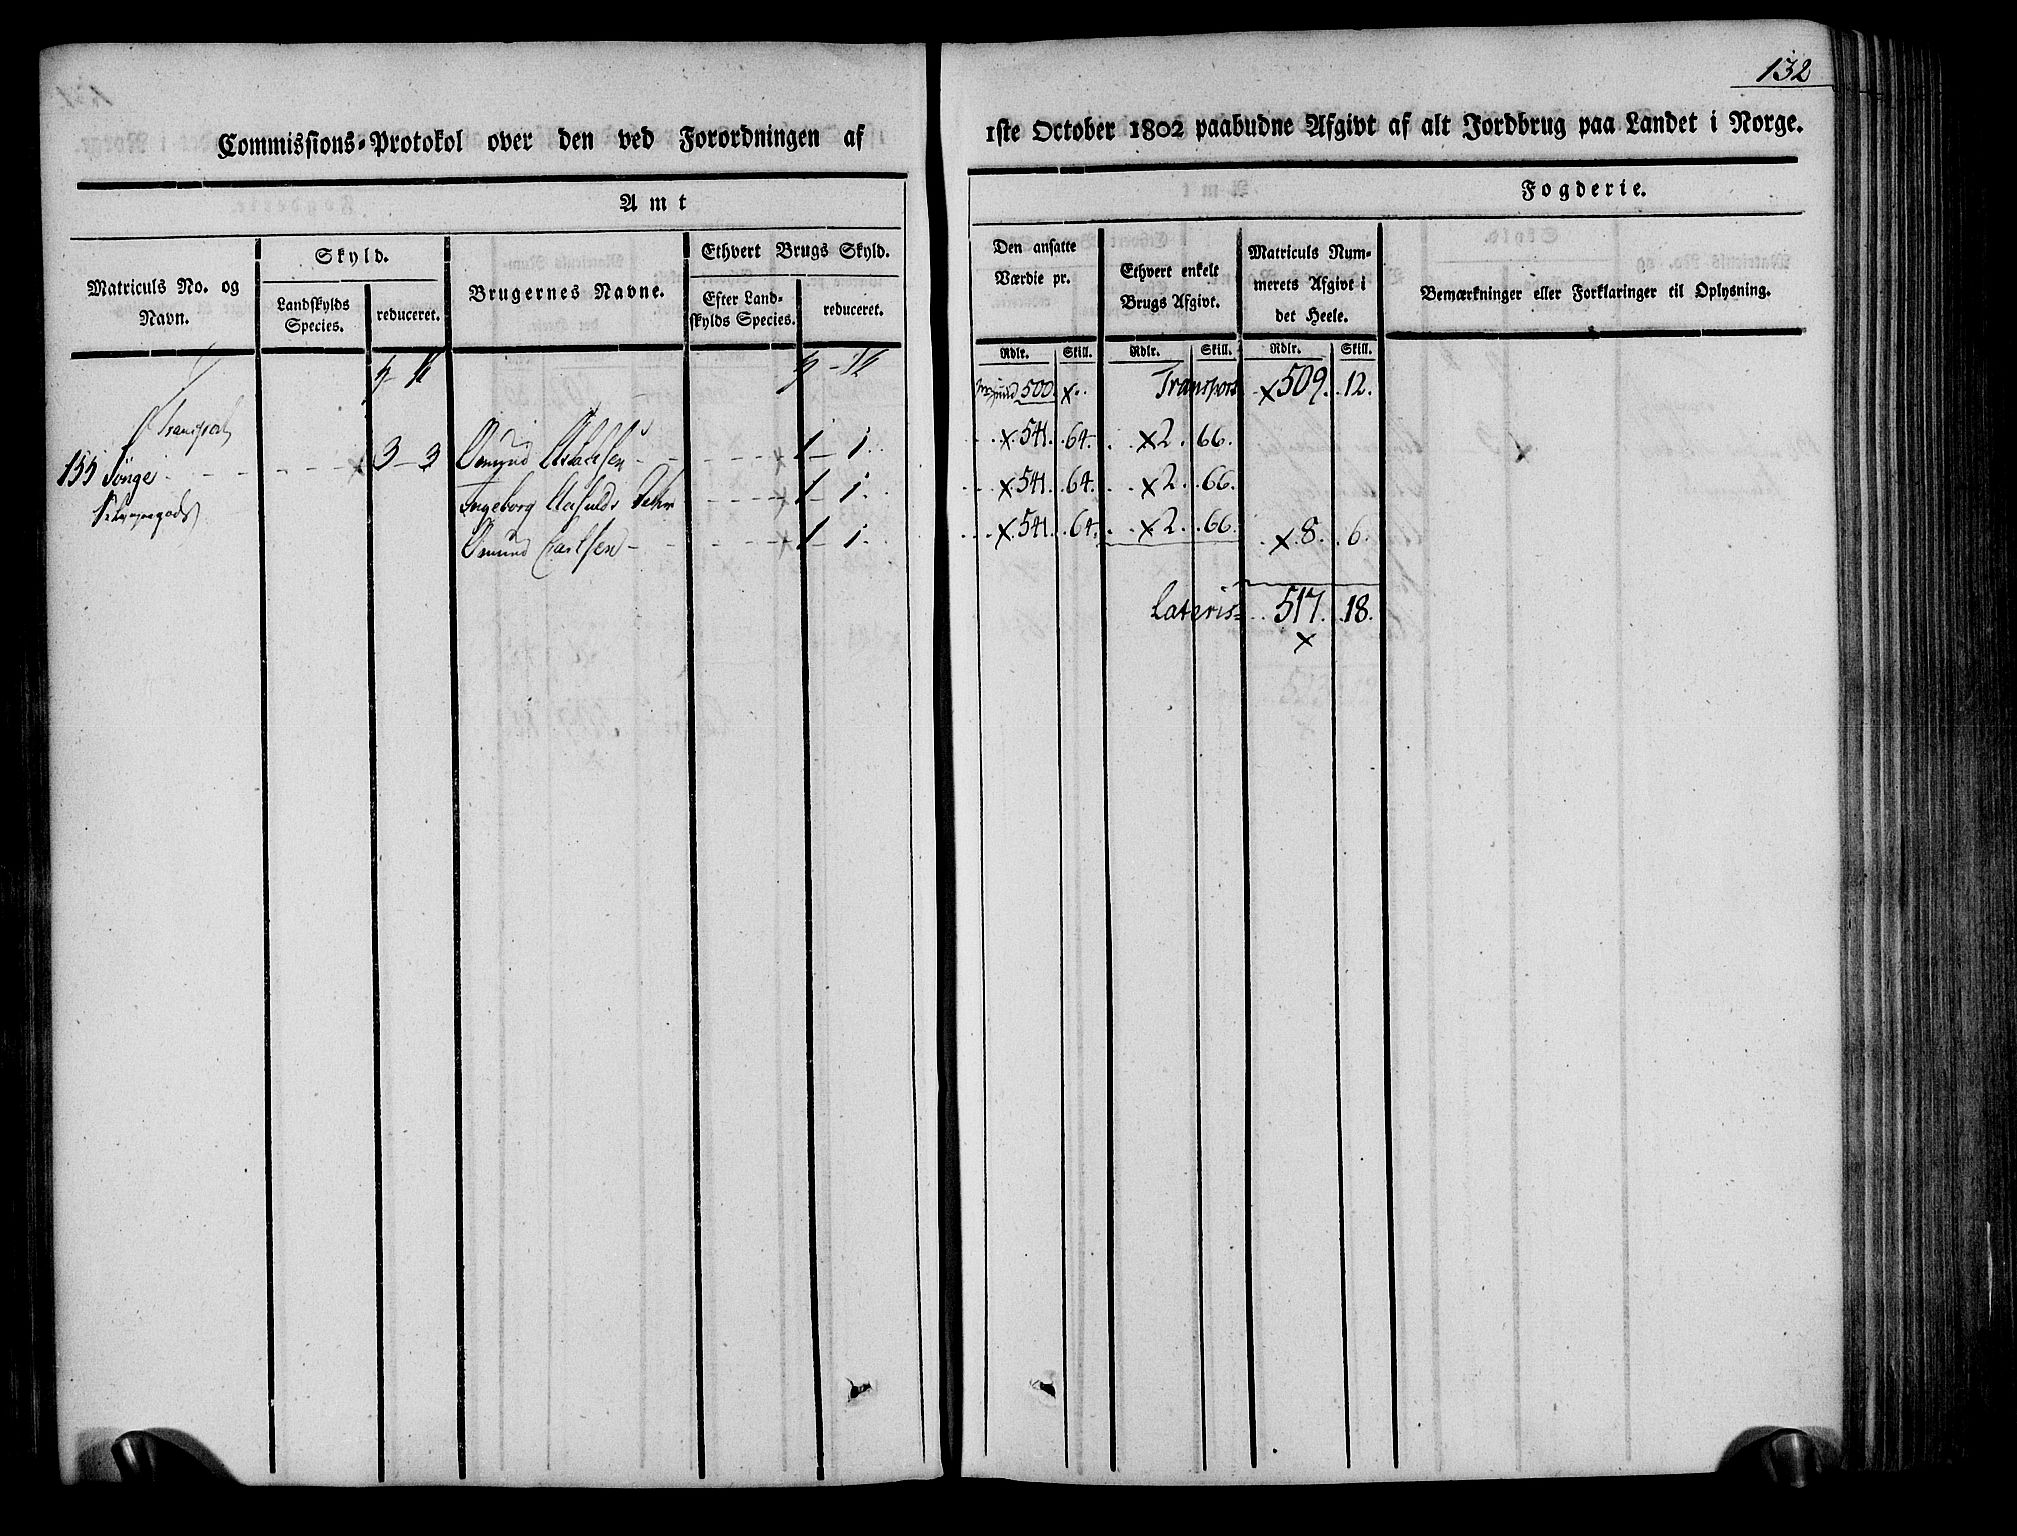 132
Commissions-Protokol over den ved Forordningen af
1ste October 1802 paabudne Afgivt af alt Jordbrug paa Landet i Norge.
Amt
Fogderie.
Matriculs No. og Navn.
Skyld.
Landskylds Species.
reduceret.
Brugernes Navne.
Ethvert Brugs Skyld.
Efter Landskylds Species.
reduceret.
Den ansatte Værdie pr.
Ethvert enkelt Brugs Afgivt.
Matriculs Nummerets Afgivt i det Heele.
Bemærkninger eller Forklaringer til Oplysning.
Rdlr. Skill. Rdlr. Skill. Rdlr. Skill.
500. x. Transport x 509. 12.
Transport
155 Songe - - - x 3 - 3 Osmund - - - x 1 - 1. x 541. 64. x 2. 66.
Ingeborg - - - x 1 - 1. x 541. 64. x 2. 66.
Osmund Carlsen - - - x 1 - 1. x 541. 64. x 2. 66. x 8. 6.
Lateris = 517. 18.
x